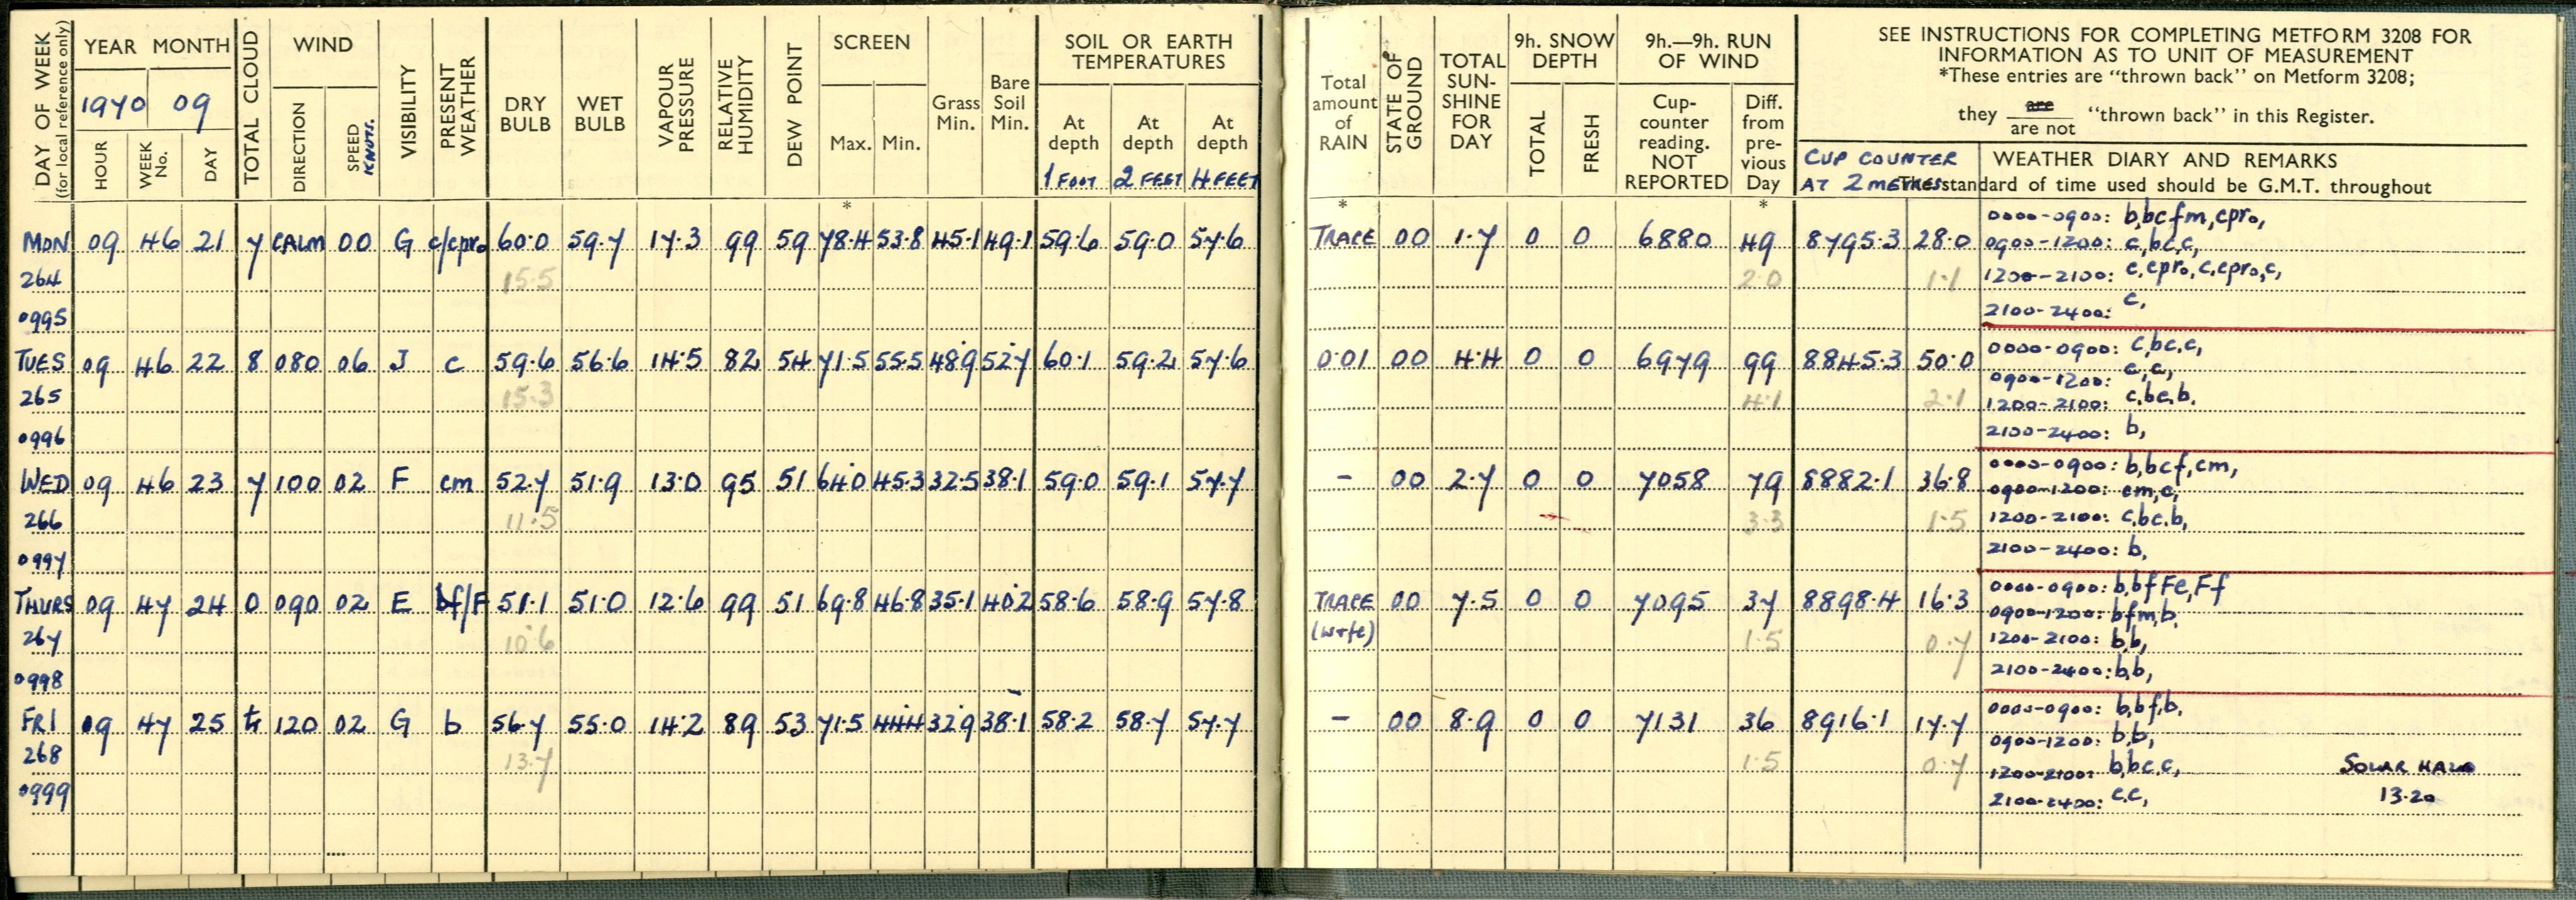 DAY OF WEEK
(for local reference only)
YEAR MONTH
1970 09
HOUR
WEEK No.
DAY
TOTAL CLOUD
WIND
DIRECTION
SPEED KNOTS.
VISIBILITY
PRESENT WEATHER
DRY BULB
WET BULB
VAPOUR PRESSURE
RELATIVE HUMIDITY
DEW POINT
SCREEN
Max. Min.
*
Grass Min.
Bare Soil Min.
SOIL OR EARTH
TEMPERATURES
At depth 1 FOOT
At depth 2 FEET
At depth 4 FEET
Total amount of RAIN
*
STATE OF GROUND
TOTAL SUN-SHINE FOR DAY
9h. SNOW DEPTH
TOTAL
FRESH
9h.—9h. RUN OF WIND
Cup-counter reading. NOT REPORTED
Diff. from pre-vious Day
*
SEE INSTRUCTIONS FOR COMPLETING METFORM 3208 FOR
INFORMATION AS TO UNIT OF MEASUREMENT
*These entries are “thrown back” on Metform 3208;
they are / are not “thrown back” in this Register.
CUP COUNTER
AT 2 METRES
WEATHER DIARY AND REMARKS
The standard of time used should be G.M.T. throughout
MON 09 46 21 7 CALM 00 G c/cpr₀ 60.0 59.7 17.3 99 59 78.4 53.8 45.1 49.1 59.6 59.0 57.6 TRACE 00 1.7 0 0 6880 49 8795.3 28.0
264 15.5 2.0 1.1
0995
0000-0900: b,bcfm,cpr₀,
0900-1200: c,bc,c,
1200-2100: c,cpr₀,c,cpr₀,c,
2100-2400: c,
TUES 09 46 22 8 080 06 J c 59.6 56.6 14.5 82 54 71.5 55.5 48.9 52.7 60.1 59.2 57.6 0.01 00 4.4 0 0 6979 99 8845.3 50.0
265 15.3 4.1 2.1
0996
0000-0900: c,bc,c,
0900-1200: c,c,
1200-2100: c,bc,b,
2100-2400: b,
WED 09 46 23 7 100 02 F cm 52.7 51.9 13.0 95 51 64.0 45.3 32.5 38.1 59.0 59.1 57.7 - 00 2.7 0 0 7058 79 8882.1 36.8
266 11.5 3.3 1.5
0997
0000-0900: b,bcf,cm,
0900-1200: cm,c,
1200-2100: c,bc,b,
2100-2400: b,
THURS 09 47 24 0 090 02 E bf/F 51.1 51.0 12.6 99 51 69.8 46.8 35.1 40.2 58.6 58.9 57.8 TRACE 00 7.5 0 0 7095 37 8898.4 16.3
267 10.6 (w+fe) 1.5 0.7
0998
0000-0900: b,bfFe,Ff
0900-1200: bfm,b,
1200-2100: b,b,
2100-2400: b,b,
FRI 09 47 25 120 02 G b 56.7 55.0 14.2 89 53 71.5 44.4 32.9 38.1 58.2 58.7 57.7 - 00 8.9 0 0 7131 36 8916.1 17.7
268 13.7 1.5 0.7
0999
0000-0900: b,bf,b,
0900-1200: b,b,
1200-2100: b,bc,c, SOLAR HALO
2100-2400: c,c, 13.20